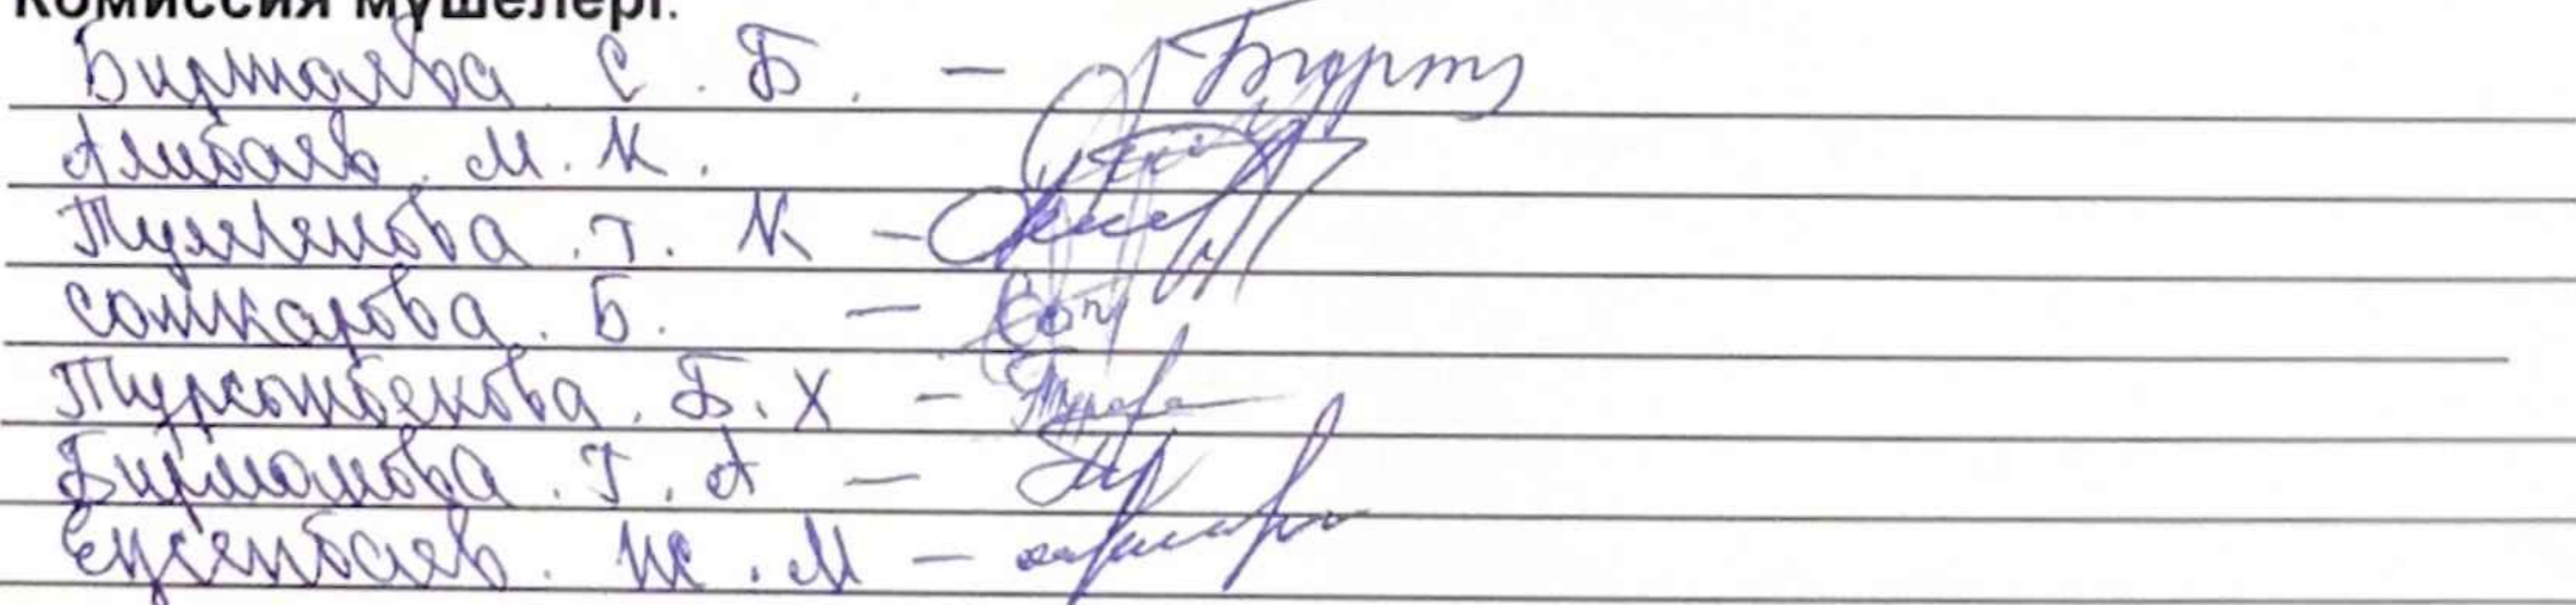 Комиссия мүшелері:
Биртаева С. Б. –
Алибаев. М. К.
Тулегенова. Т. К –
Сотқарова. Б. –
Турсынбекова. Б. Х –
Бирманова. Г. А –
Есенбаев. Ж. М –